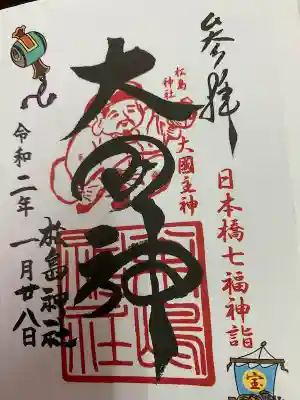 参拝
日本橋七福神詣
松島神社
大國主神
大国神
松島神社
令和二年一月廿八日
宝